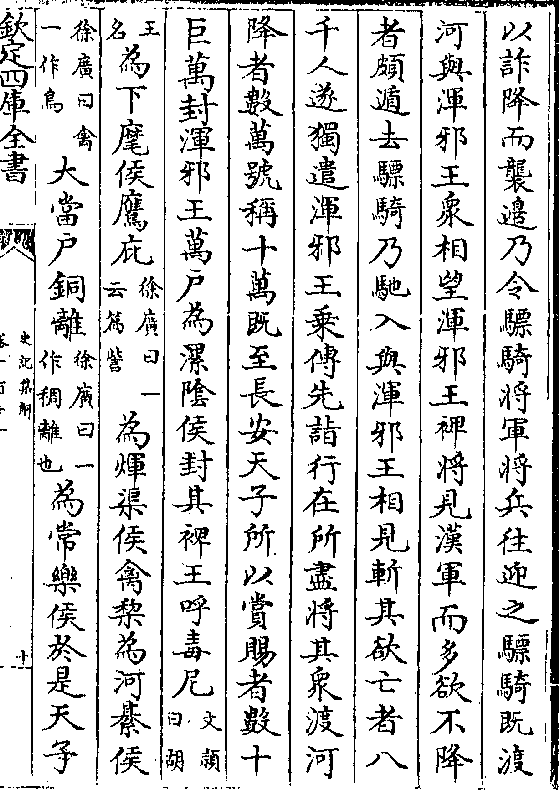 以詐降而襲邊乃令驃騎將軍將兵往迎之驃騎既渡
河與渾邪王衆相望渾邪王裨將見漢軍而多欲不降
者頗遁去驃騎乃馳入與渾邪王相見斬其欲亡者八
千人遂獨遣渾邪王乘傳先詣行在所盡將其衆渡河
降者數萬號稱十萬既至長安天子所以賞賜者數十
巨萬封渾邪王萬户為漯隂侯封其裨王呼毒尼文頴曰胡
王名為下麾侯鷹庇徐廣曰一云篇訾為煇渠侯禽棃為河綦侯
徐廣曰禽一作烏大當户銅離徐廣曰一作稠離也為常樂侯於是天子
欽定四庫全書
史記集解
卷一百十一
十